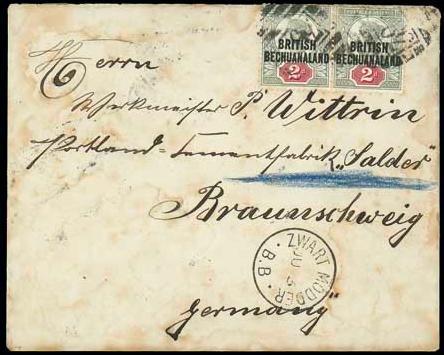 BRITISH BECHUANALAND 2d
BRITISH BECHUANALAND 2d
Herrn
Werkmeister P. Wittrin
Portland-Cementfabrik "Salder"
Braunschweig
ZWART MODDER
JU
B.B.
Germany